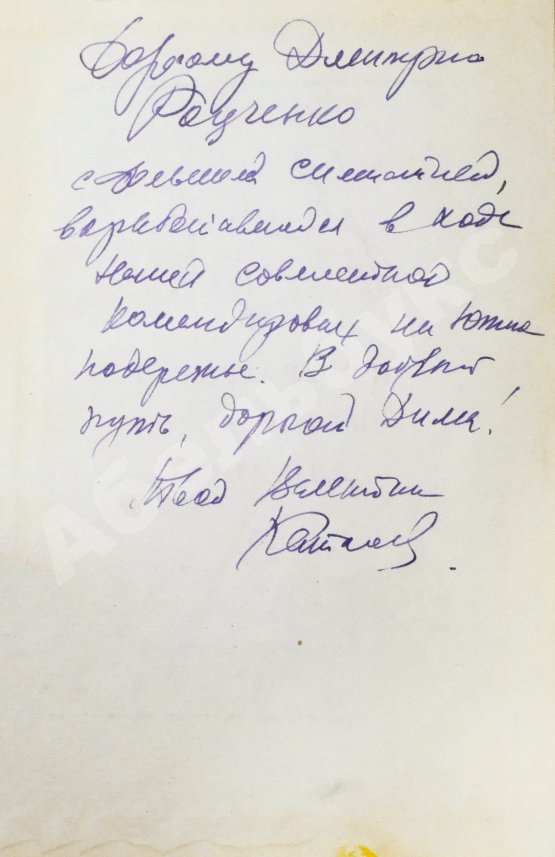 Дорогому Дмитрию
Радченко
с большой симпатией,
выработавшейся в ходе
нашей совместной
командировки на Южное
побережье. В добрый
путь, дорогой Дима!
Твой Валентин
Катаев.
Абельбукс